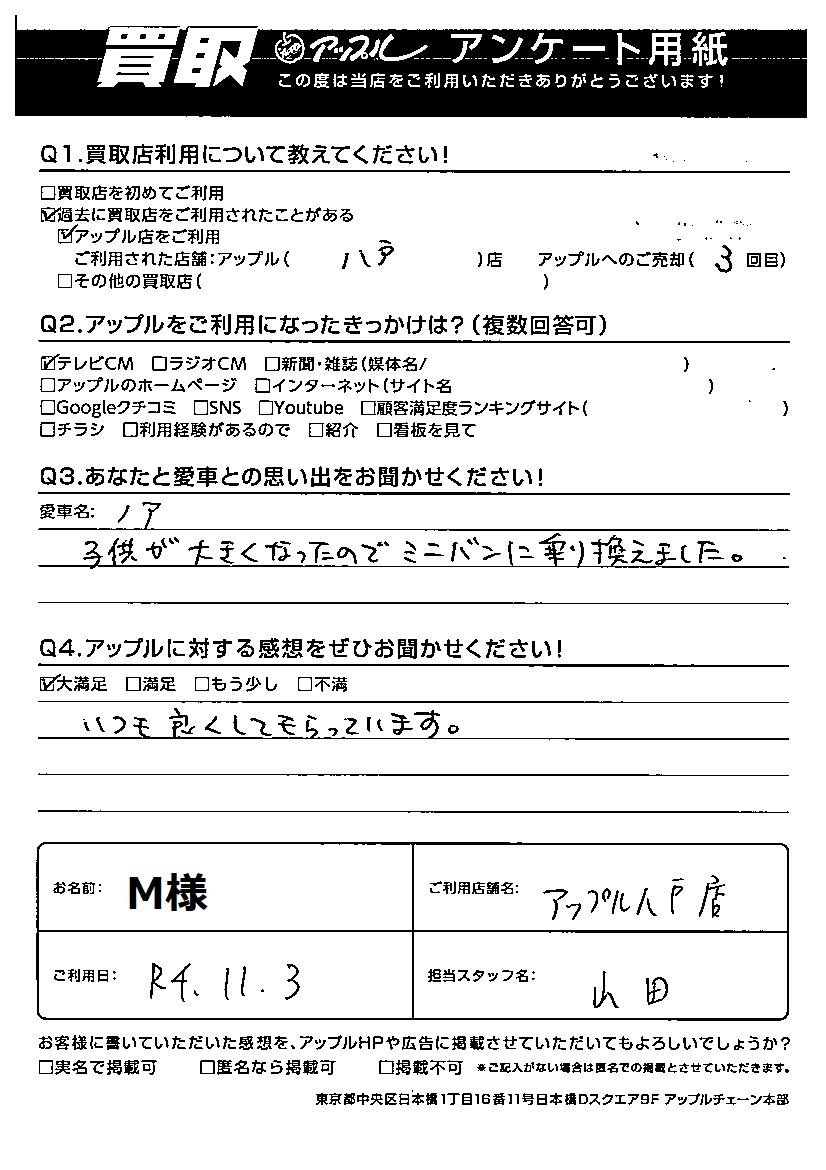 買取 アップル アンケート用紙
この度は当店をご利用いただきありがとうございます!
Q1.買取店利用について教えてください!
□買取店を初めてご利用
☑過去に買取店をご利用されたことがある
☑アップル店をご利用
ご利用された店舗:アップル( 八戸 )店 アップルへのご売却( 3 回目)
□その他の買取店( )
Q2.アップルをご利用になったきっかけは?(複数回答可)
☑テレビCM □ラジオCM □新聞・雑誌(媒体名/ )
□アップルのホームページ □インターネット(サイト名 )
□Googleクチコミ □SNS □Youtube □顧客満足度ランキングサイト( )
□チラシ □利用経験があるので □紹介 □看板を見て
Q3.あなたと愛車との思い出をお聞かせください!
愛車名: ノア
子供が大きくなったのでミニバンに乗り換えました。
Q4.アップルに対する感想をぜひお聞かせください!
☑大満足 □満足 □もう少し □不満
いつも良くしてもらっています。
お名前: M様
ご利用店舗名: アップル八戸店
ご利用日: R4.11.3
担当スタッフ名: 山田
お客様に書いていただいた感想を、アップルHPや広告に掲載させていただいてもよろしいでしょうか?
□実名で掲載可 □匿名なら掲載可 □掲載不可 *ご記入がない場合は匿名での掲載とさせていただきます。
東京都中央区日本橋1丁目16番11号日本橋Dスクエア9F アップルチェーン本部